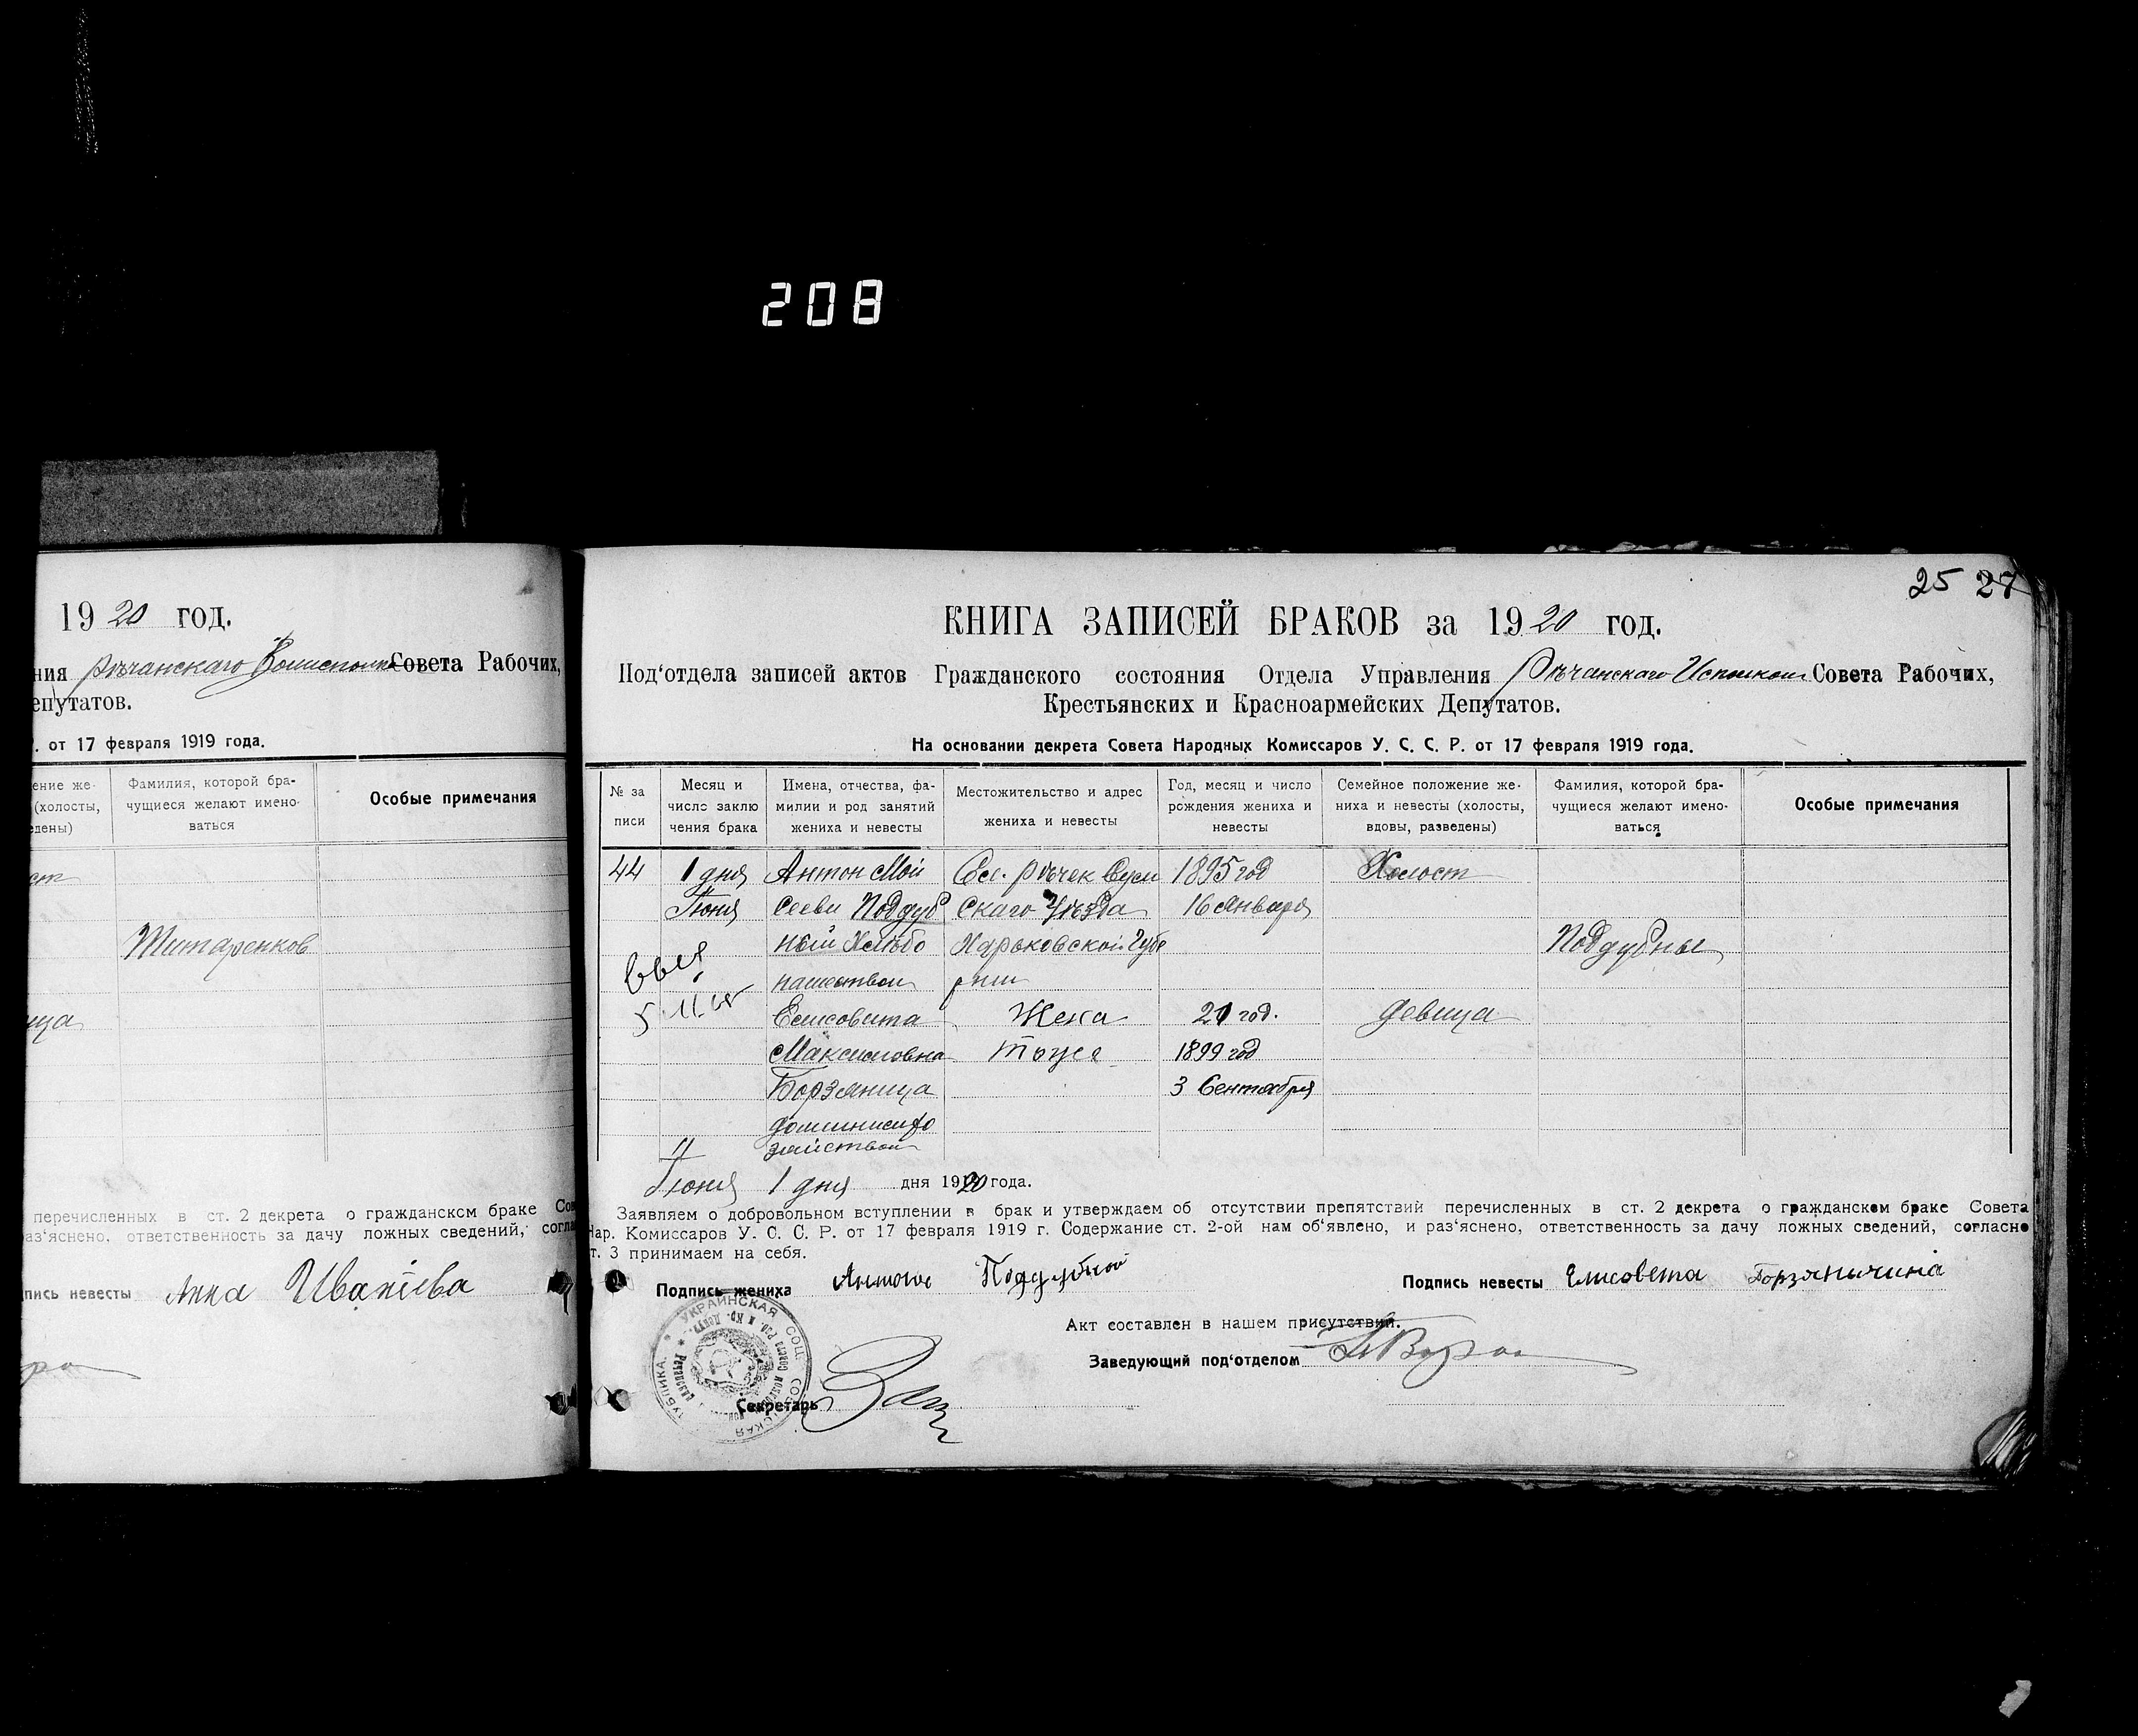 208
19 20 год.
ния Рѣчанскаго Совета Рабочих,
епутатов.
Р. от 17 февраля 1919 года.
ение же-
(холосты,
едены)
Фамилия, которой бра-
чущиеся желают имено-
ваться
Особые примечания
ст
Титаренков
ица
перечисленных в ст. 2 декрета о гражданском браке Сов
раз'яснено, ответственность за дачу ложных сведений, согла
пись невесты Анна Иванiева
25 27
КНИГА ЗАПИСЕЙ БРАКОВ за 19 20 год.
Под'отдела записей актов Гражданского состояния Отдела Управления Рѣчанскаго Исполком Совета Рабочих,
Крестьянских и Красноармейских Депутатов.
На основании декрета Совета Народных Комиссаров У. С. С. Р. от 17 февраля 1919 года.
№ за
писи
Месяц и
число заклю
чения брака
Имена, отчества, фа-
милии и род занятий
жениха и невесты
Местожительство и адрес
жениха и невесты
Год, месяц и число
рождения жениха и
невесты
Семейное положение же-
ниха и невесты (холосты,
вдовы, разведены)
Фамилия, которой бра-
чущиеся желают имено-
ваться
Особые примечания
44 1 дня Антон Мои Сел. Рѣчек Сум 1895 год Холост
Июня сееви Поддуб скаго Уѣзда 16 Января
ный Хлѣбо Харьковской Губе Поддубные
пашеством рнии
Елисовета Жена 21 год. девица
Максимовна тоже 1899 год
Борзяница 3 Сентября
домишнимхо
зяйством
Июня 1 дня дня 1920 года.
Заявляем о добровольном вступлении в брак и утверждаем об отсутствии препятствий перечисленных в ст. 2 декрета о гражданском браке Совета
Нар. Комиссаров У. С. С. Р. от 17 февраля 1919 г. Содержание ст. 2-ой нам об'явлено, и раз'яснено, ответственность за дачу ложных сведений, согласно
т. 3 принимаем на себя.
Подпись жениха Антонъ Поддубной
Подпись невесты Елисовета Борзяничина
Акт составлен в нашем присутствии.
Заведующий под'отделом
Секретарь
УКРАИНСКАЯ СОЦ. СОВЕТСКАЯ